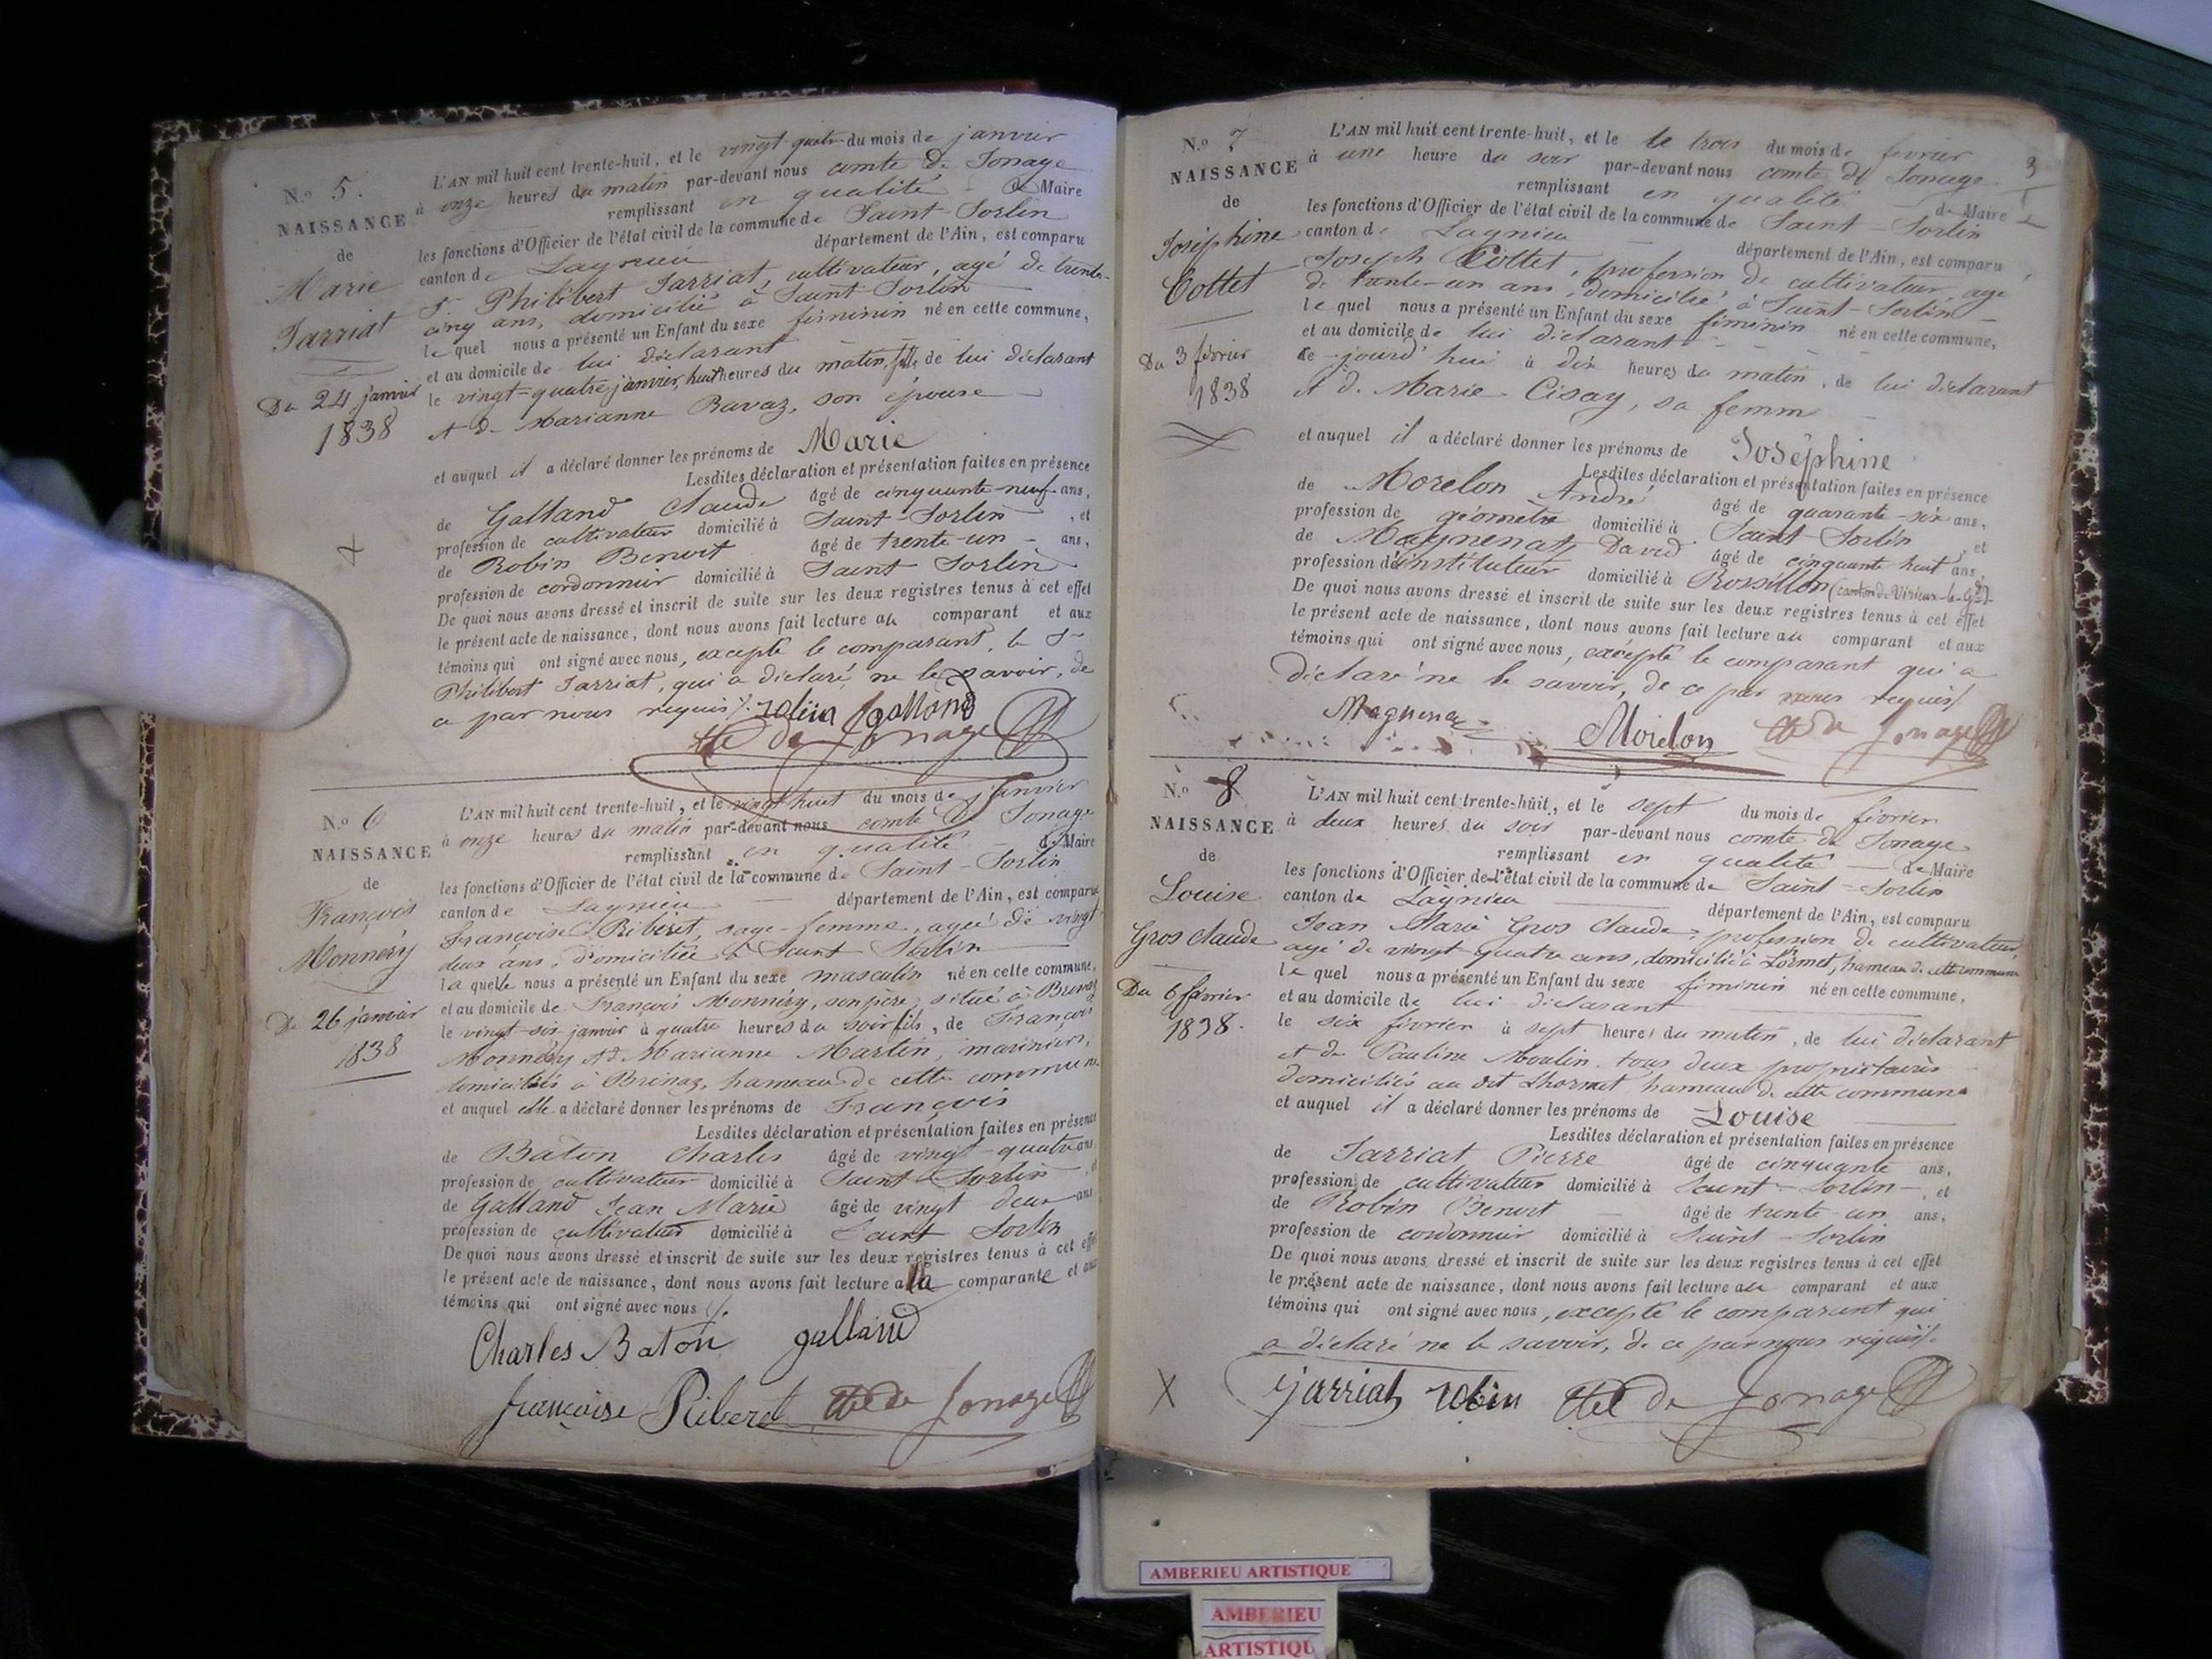 N.º 5.
NAISSANCE
de
Marie
Jarriat
Du 24 janvier
1838
L'AN mil huit cent trente-huit, et le vingt-quatre du mois de janvier
à onze heures du matin par-devant nous comte de Jonage
remplissant en qualité de Maire
les fonctions d'Officier de l'état civil de la commune de Saint-Sorlin
canton de Lagnieu département de l'Ain, est comparu
Sr Philibert Jarriat, cultivateur, agé de trente-
cinq ans, domicilié à Saint Sorlin
le quel nous a présenté un Enfant du sexe féminin né en cette commune,
et au domicile de lui déclarant
le vingt-quatre janvier, huit heures du matin, fille de lui déclarant
et de Marianne Ravaz, son épouse
et auquel il a déclaré donner les prénoms de Marie
Lesdites déclaration et présentation faites en présence
de Galland Claude âgé de cinquante-neuf ans,
profession de cultivateur domicilié à Saint-Sorlin, et
de Robin Benoit âgé de trente-un ans,
profession de cordonnier domicilié à Saint Sorlin
De quoi nous avons dressé et inscrit de suite sur les deux registres tenus à cet effet
le présent acte de naissance, dont nous avons fait lecture au comparant et aux
témoins qui ont signé avec nous, excepté le comparant, le Sr
Philibert Jarriat, qui a déclaré ne le savoir, de
ce par nous requis/. robin galland
de Jonage
N.º 6
NAISSANCE
de
François
Monnéry
Du 26 janvier
1838
L'AN mil huit cent trente-huit, et le vingt huit du mois de janvier
à onze heures du matin par-devant nous comte de Jonage
remplissant en qualité de Maire
les fonctions d'Officier de l'état civil de la commune de Saint-Sorlin
canton de Lagnieu département de l'Ain, est comparue
Françoise Riberet, sage-femme, agée de vingt
deux ans, domiciliée à Saint Sorlin
la quelle nous a présenté un Enfant du sexe masculin né en cette commune,
et au domicile de François Monnéry, son père, situé à Brenaz
le vingt-six janvier à quatre heures du soir fils, de François
Monnéry et de Marianne Martin, mariniers,
domiciliés à Brenaz, hameau de cette commune
et auquel elle a déclaré donner les prénoms de François
Lesdites déclaration et présentation faites en présence
de Bâton Charles âgé de vingt-quatre ans,
profession de cultivateur domicilié à Saint-Sorlin, et
de Galland Jean Marie âgé de vingt deux ans
profession de cultivateur domicilié à Saint Sorlin
De quoi nous avons dressé et inscrit de suite sur les deux registres tenus à cet effet
le présent acte de naissance, dont nous avons fait lecture à la comparante et aux
témoins qui ont signé avec nous /.
Charles Baton galland
françoise Riberet de Jonage
3
N.º 7
NAISSANCE
de
Joséphine
Cottet
Du 3 février
1838
L'AN mil huit cent trente-huit, et le le trois du mois de février
à une heure du soir par-devant nous comte de Jonage
remplissant en qualité de Maire
les fonctions d'Officier de l'état civil de la commune de Saint-Sorlin
canton de Lagnieu département de l'Ain, est comparu
Joseph Cottet, profession de cultivateur, agé
de trente-un ans, domicilié à Saint-Sorlin
le quel nous a présenté un Enfant du sexe féminin né en cette commune,
et au domicile de lui déclarant
ce-jourd'hui à dix heures du matin, de lui déclarant
et de Marie Cisay, sa femme
et auquel il a déclaré donner les prénoms de Joséphine
Lesdites déclaration et présentation faites en présence
de Morelon André âgé de quarante-six ans,
profession de géomètre domicilié à Saint-Sorlin, et
de Magnenat David âgé de cinquante-huit ans,
profession d'instituteur domicilié à Rossillon (canton de Virieux-le-Gd)
De quoi nous avons dressé et inscrit de suite sur les deux registres tenus à cet effet
le présent acte de naissance, dont nous avons fait lecture au comparant et aux
témoins qui ont signé avec nous, excepté le comparant qui a
déclaré ne le savoir, de ce par nous requis/.
Magnenat Morelon de Jonage
N.º 8
NAISSANCE
de
Louise
Gros Claude
Du 6 février
1838.
L'AN mil huit cent trente-huit, et le sept du mois de février
à deux heures du soir par-devant nous comte de Jonage
remplissant en qualité de Maire
les fonctions d'Officier de l'état civil de la commune de Saint-Sorlin
canton de Lagnieu département de l'Ain, est comparu
Jean Marie Gros Claude, profession de cultivateur,
agé de vingt-quatre ans, domicilié à Lormet, hameau de cette commune
le quel nous a présenté un Enfant du sexe féminin né en cette commune,
et au domicile de lui déclarant
le six février à sept heures du matin, de lui déclarant
et de Pauline Moulin, tous deux propriétaires
domiciliés au dit Lhormet hameau de cette commune
et auquel il a déclaré donner les prénoms de Louise
Lesdites déclaration et présentation faites en présence
de Jarriat Pierre âgé de cinquante ans,
profession de cultivateur domicilié à Saint-Sorlin, et
de Robin Benoit âgé de trente-un ans,
profession de cordonnier domicilié à Saint-Sorlin
De quoi nous avons dressé et inscrit de suite sur les deux registres tenus à cet effet
le présent acte de naissance, dont nous avons fait lecture au comparant et aux
témoins qui ont signé avec nous, excepté le comparant qui
a déclaré ne le savoir, de ce par nous requis/.
jarriat robin de Jonage
AMBERIEU ARTISTIQUE
AMBERIEU
ARTISTIQU